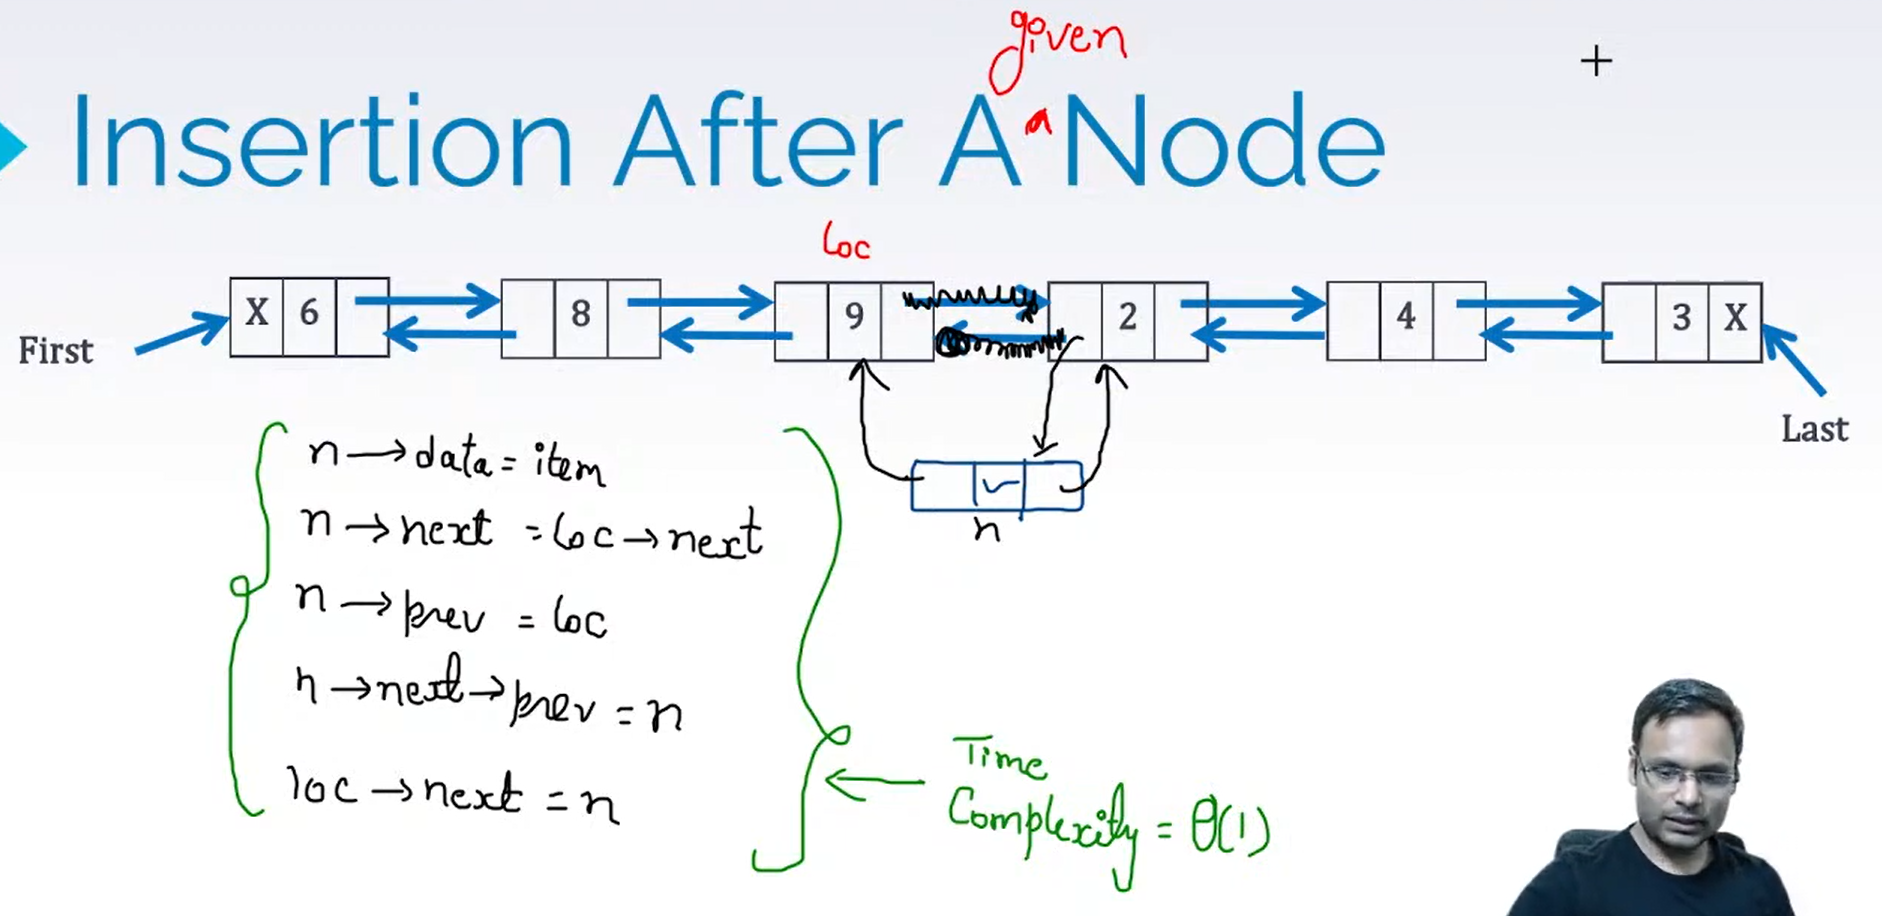 given
Insertion After A a Node
Loc
X 6 8 9 2 4 3 X
First
Last
n→data = item
n→next = loc→next
n→prev = loc
n→next→prev = n
loc→next = n
n
Time
Complexity = θ(1)